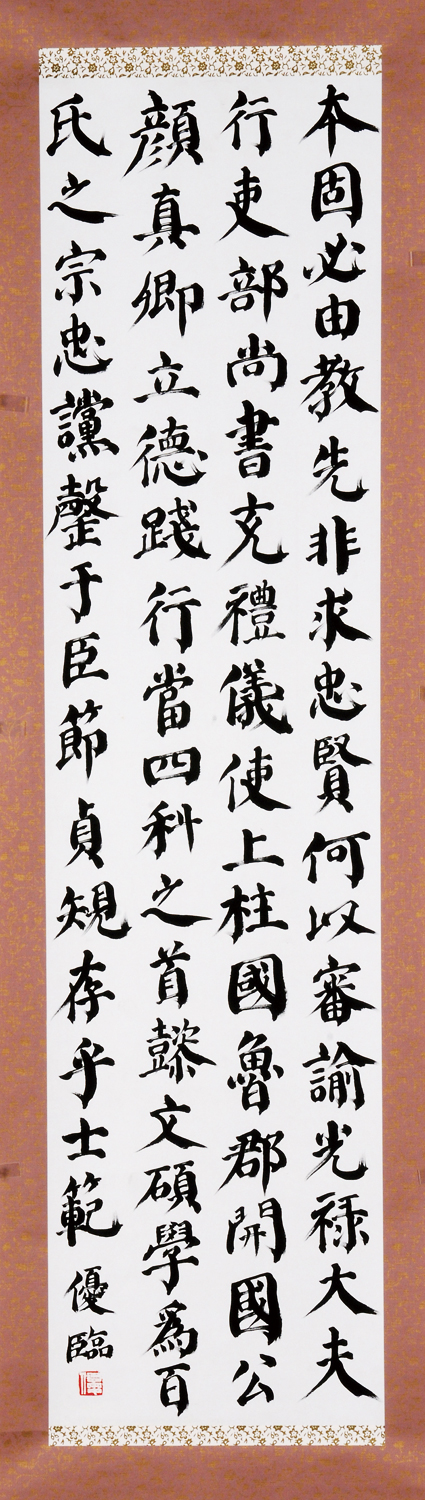 本固必由教先非求忠賢何以審諭光禄大夫
行吏部尚書充禮儀使上柱國魯郡開國公
顔真卿立德踐行當四科之首懿文碩學爲百
氏之宗忠讜罄于臣節貞䂓存乎士範 優臨